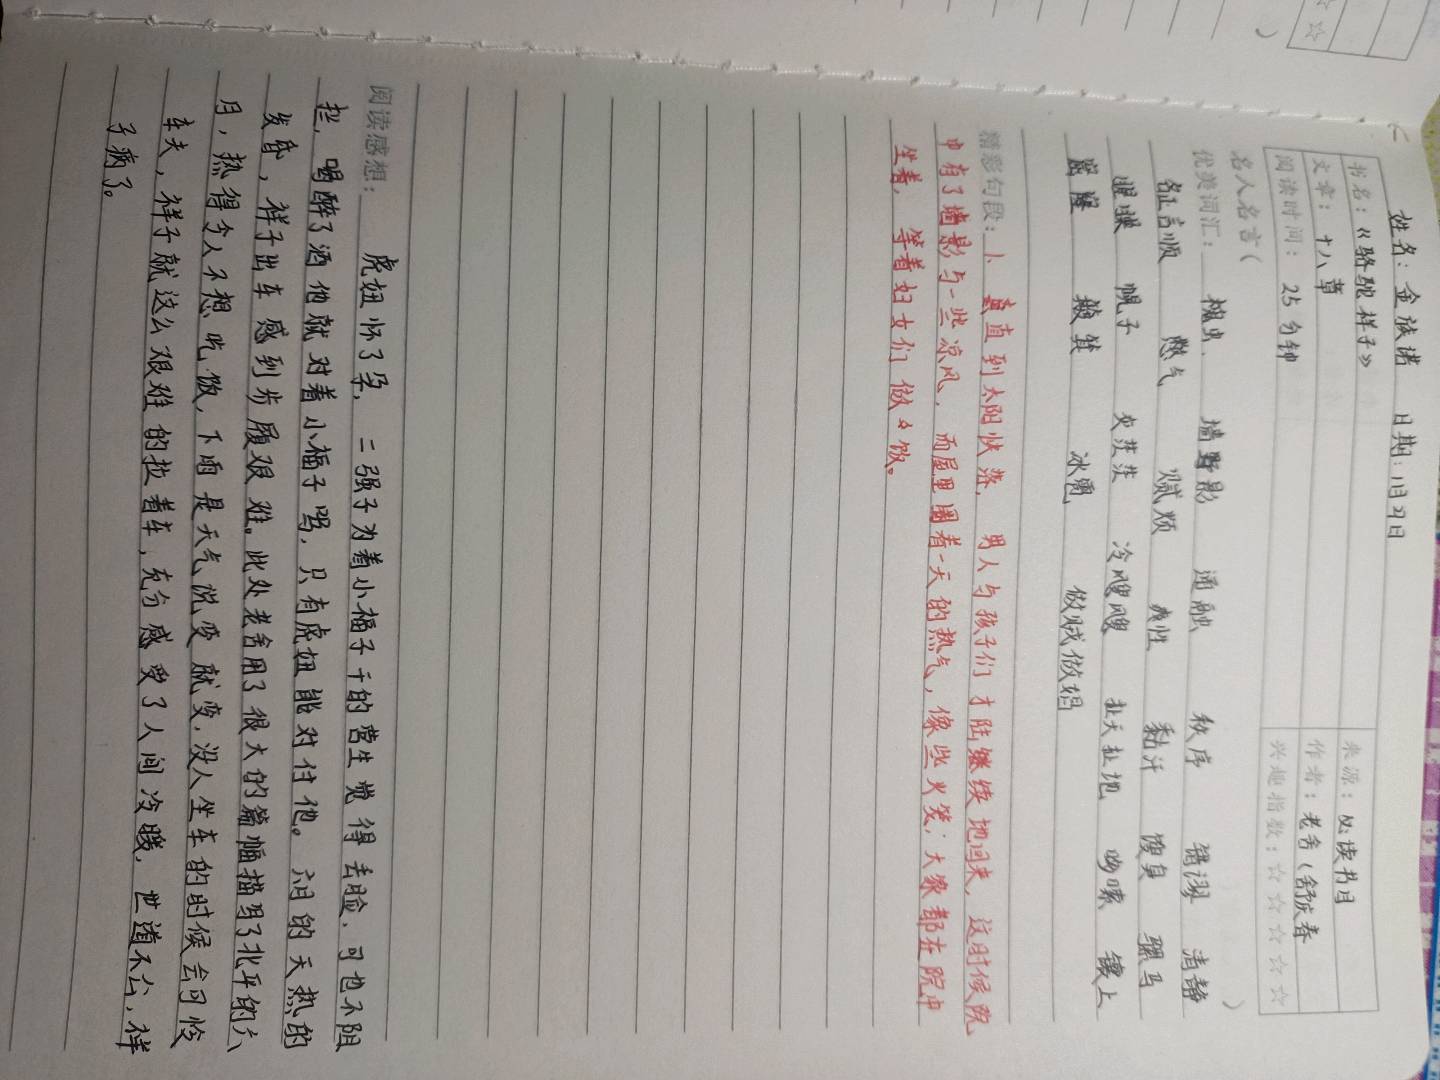 姓名：金 诺 日期：1月21日
书名：《骆驼祥子》 来源：必读书目
文章：十八章 作者：老舍（舒庆春
阅读时间：25分钟 兴趣指数：☆☆☆☆☆
名人名言（ ）
优美词汇： 槐虫、 墙影 通融 秩序 错谬 清静
名正言顺 燃气 腻烦 爽性 黏汗 馊臭 骡马
腿腰 幌子 灰茫茫 冷飕飕 扯天扯地 哆嗦 镀上
朦胧 簸箕 冰雹 做贼做娼
精彩句段：1、直到太阳快落，男人与孩子们才陆继续地回来，这时候院
中有了墙影与一些凉风，而屋里圈着一天的热气，像些火笼；大家都在院中
坐着，等着妇女们做饭。
阅读感想： 虎妞怀了孕，二强子为着小福子干的营生觉得丢脸，可也不阻
拦，喝醉了酒他就对着小福子吗，只有虎妞能对付他。六月的天热的
发昏，祥子出车感到步履艰难。此处老舍用了很大的篇幅描写了北平的六
月，热得令人不想吃饭，下雨是天气说变就变，没人坐车的时候会可怜
车夫，祥子就这么艰难的拉着车，充分感受了人间冷暖，世道不公，祥
子病了。